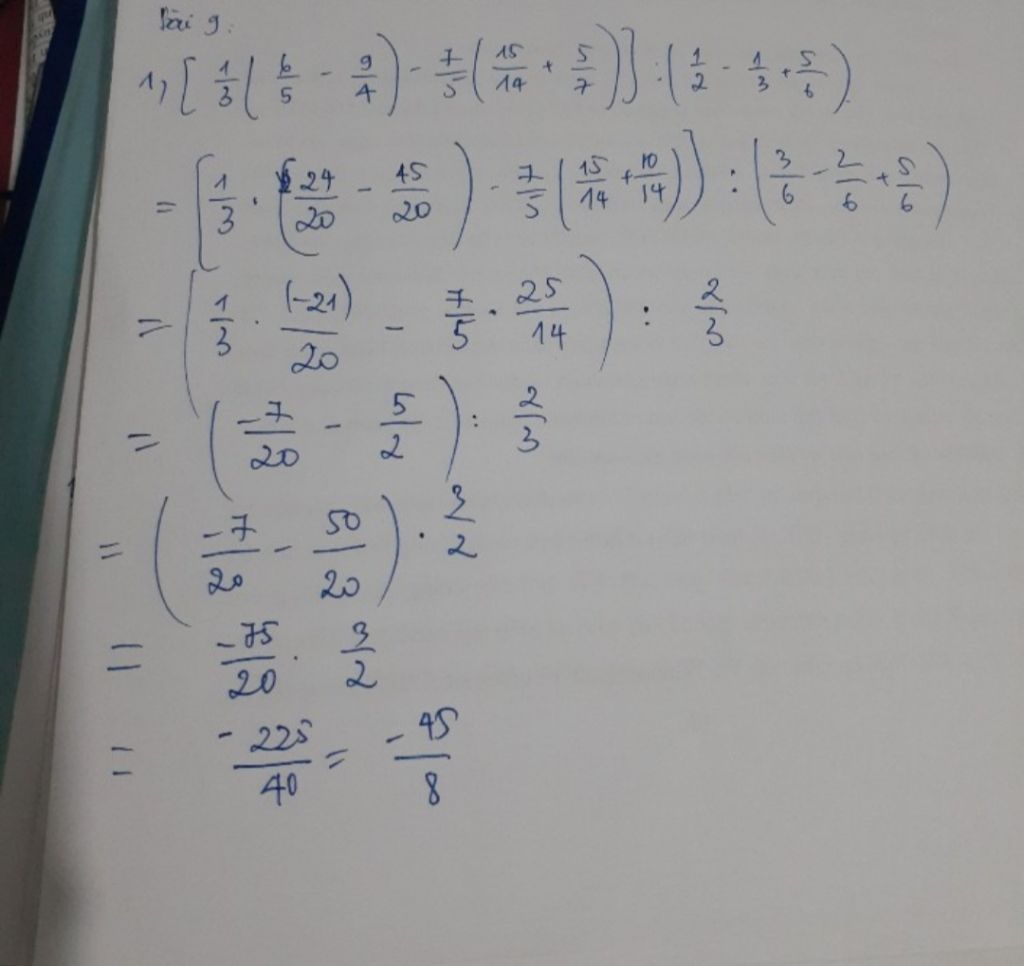 Bài 9:
1, [ 1/3 ( 6/5 - 9/4 ) - 7/5 ( 15/14 + 5/7 ) ] : ( 1/2 - 1/3 + 5/6 )
= [ 1/3 . ( 24/20 - 45/20 ) - 7/5 ( 15/14 + 10/14 ) ] : ( 3/6 - 2/6 + 5/6 )
= ( 1/3 . (-21)/20 - 7/5 . 25/14 ) : 2/3
= ( -7/20 - 5/2 ) : 2/3
= ( -7/20 - 50/20 ) . 3/2
= -75/20 . 3/2
= -225/40 = -45/8